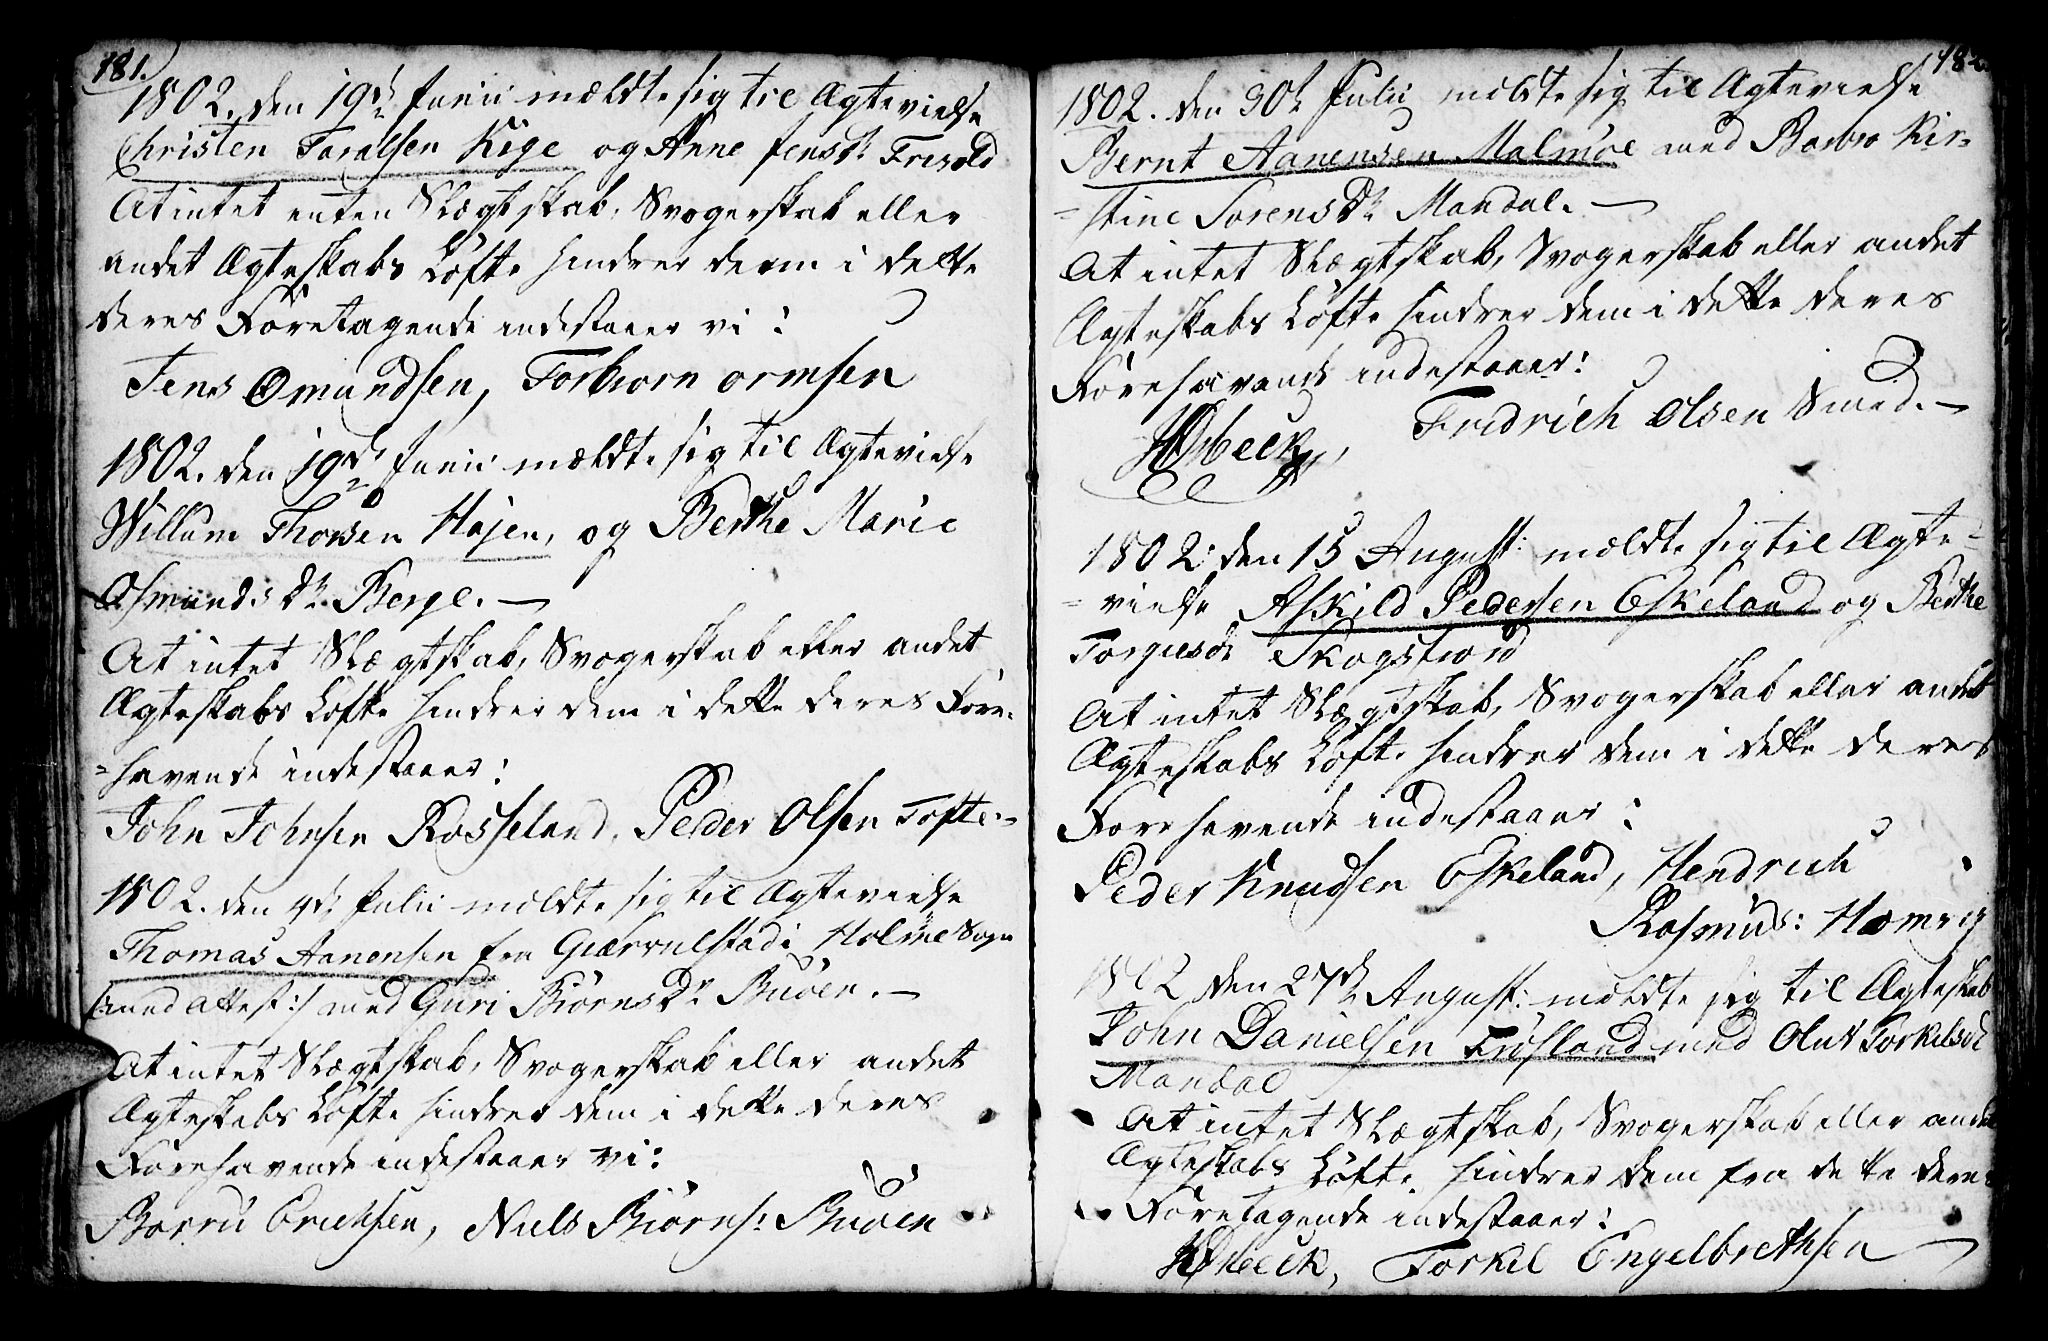 181.
1802. den 19de Junii mældte sig til Ægtevielse
Christen Taralsen Kige og Anne Jensdr Fresold
At intet enten Slægtskab, Svogerskab eller
andet Ægteskabs Løfte hindrer dem i dette
deres Foretagende indestaaer vi:
Jens Omundsen, Torbiorn ormsen
1802. den 19de Junii mældte sig til Ægtevielse
Willum Thorsen Højen, og Berthe Marie
Osmunds Dr. Berge. —
At intet Slægtskab, Svogerskab eller andet
Ægteskabs Løfte hindrer dem i dette deres Fore-
=havende indestaaer:
John Johnsen Rosseland, Peder Olsen Tofte.=
1802. den 9de Julii mældte sig til Ægtevielse
Thomas Aanensen fra Giervelstad i Holme Sogn
(:med Attest:) med Guri Biørns Dr. Buøen. —
At intet Slægtskab, Svogerskab eller andet
Ægteskabs Løfte hindrer dem i dette deres
Forehavende indestaaer vi:
Borru Erichsen, Niels Biørns: Buøen
182.
1802. den 30te Julii mældte sig til Ægtevielse
Bernt Aanensen Malmøe med Barbro Kir=
=stine Sørens Dr. Mandal. —
At intet Slægtskab, Svogerskab eller andet
Ægteskabs Løfte hindrer dem i dette deres
Forehavende indestaaer:
Fridrich Olsen Smed. —
1802. den 15 August: mældte sig til Ægte=
=vielse Askild Pedersen Eskeland og Berthe
Torgiesdr Skogsfiord
At intet Slægtskab, Svogerskab eller andet
Ægteskabs Løfte hindrer dem i dette deres
Forehavende indestaaer:
Peder Knudsen Eskeland, Hendrich
Rasmus: Homre
1802 den 27de August: mældte sig til Ægteskab
John Danielsen Frøsland med Olut Torkilsdr
Mandal
At intet Slægtskab, Svogerskab eller andet
Ægteskabs Løfte hindrer dem fra dette deres
Foretagende indestaaer:
Torkil Engelbrethsen —